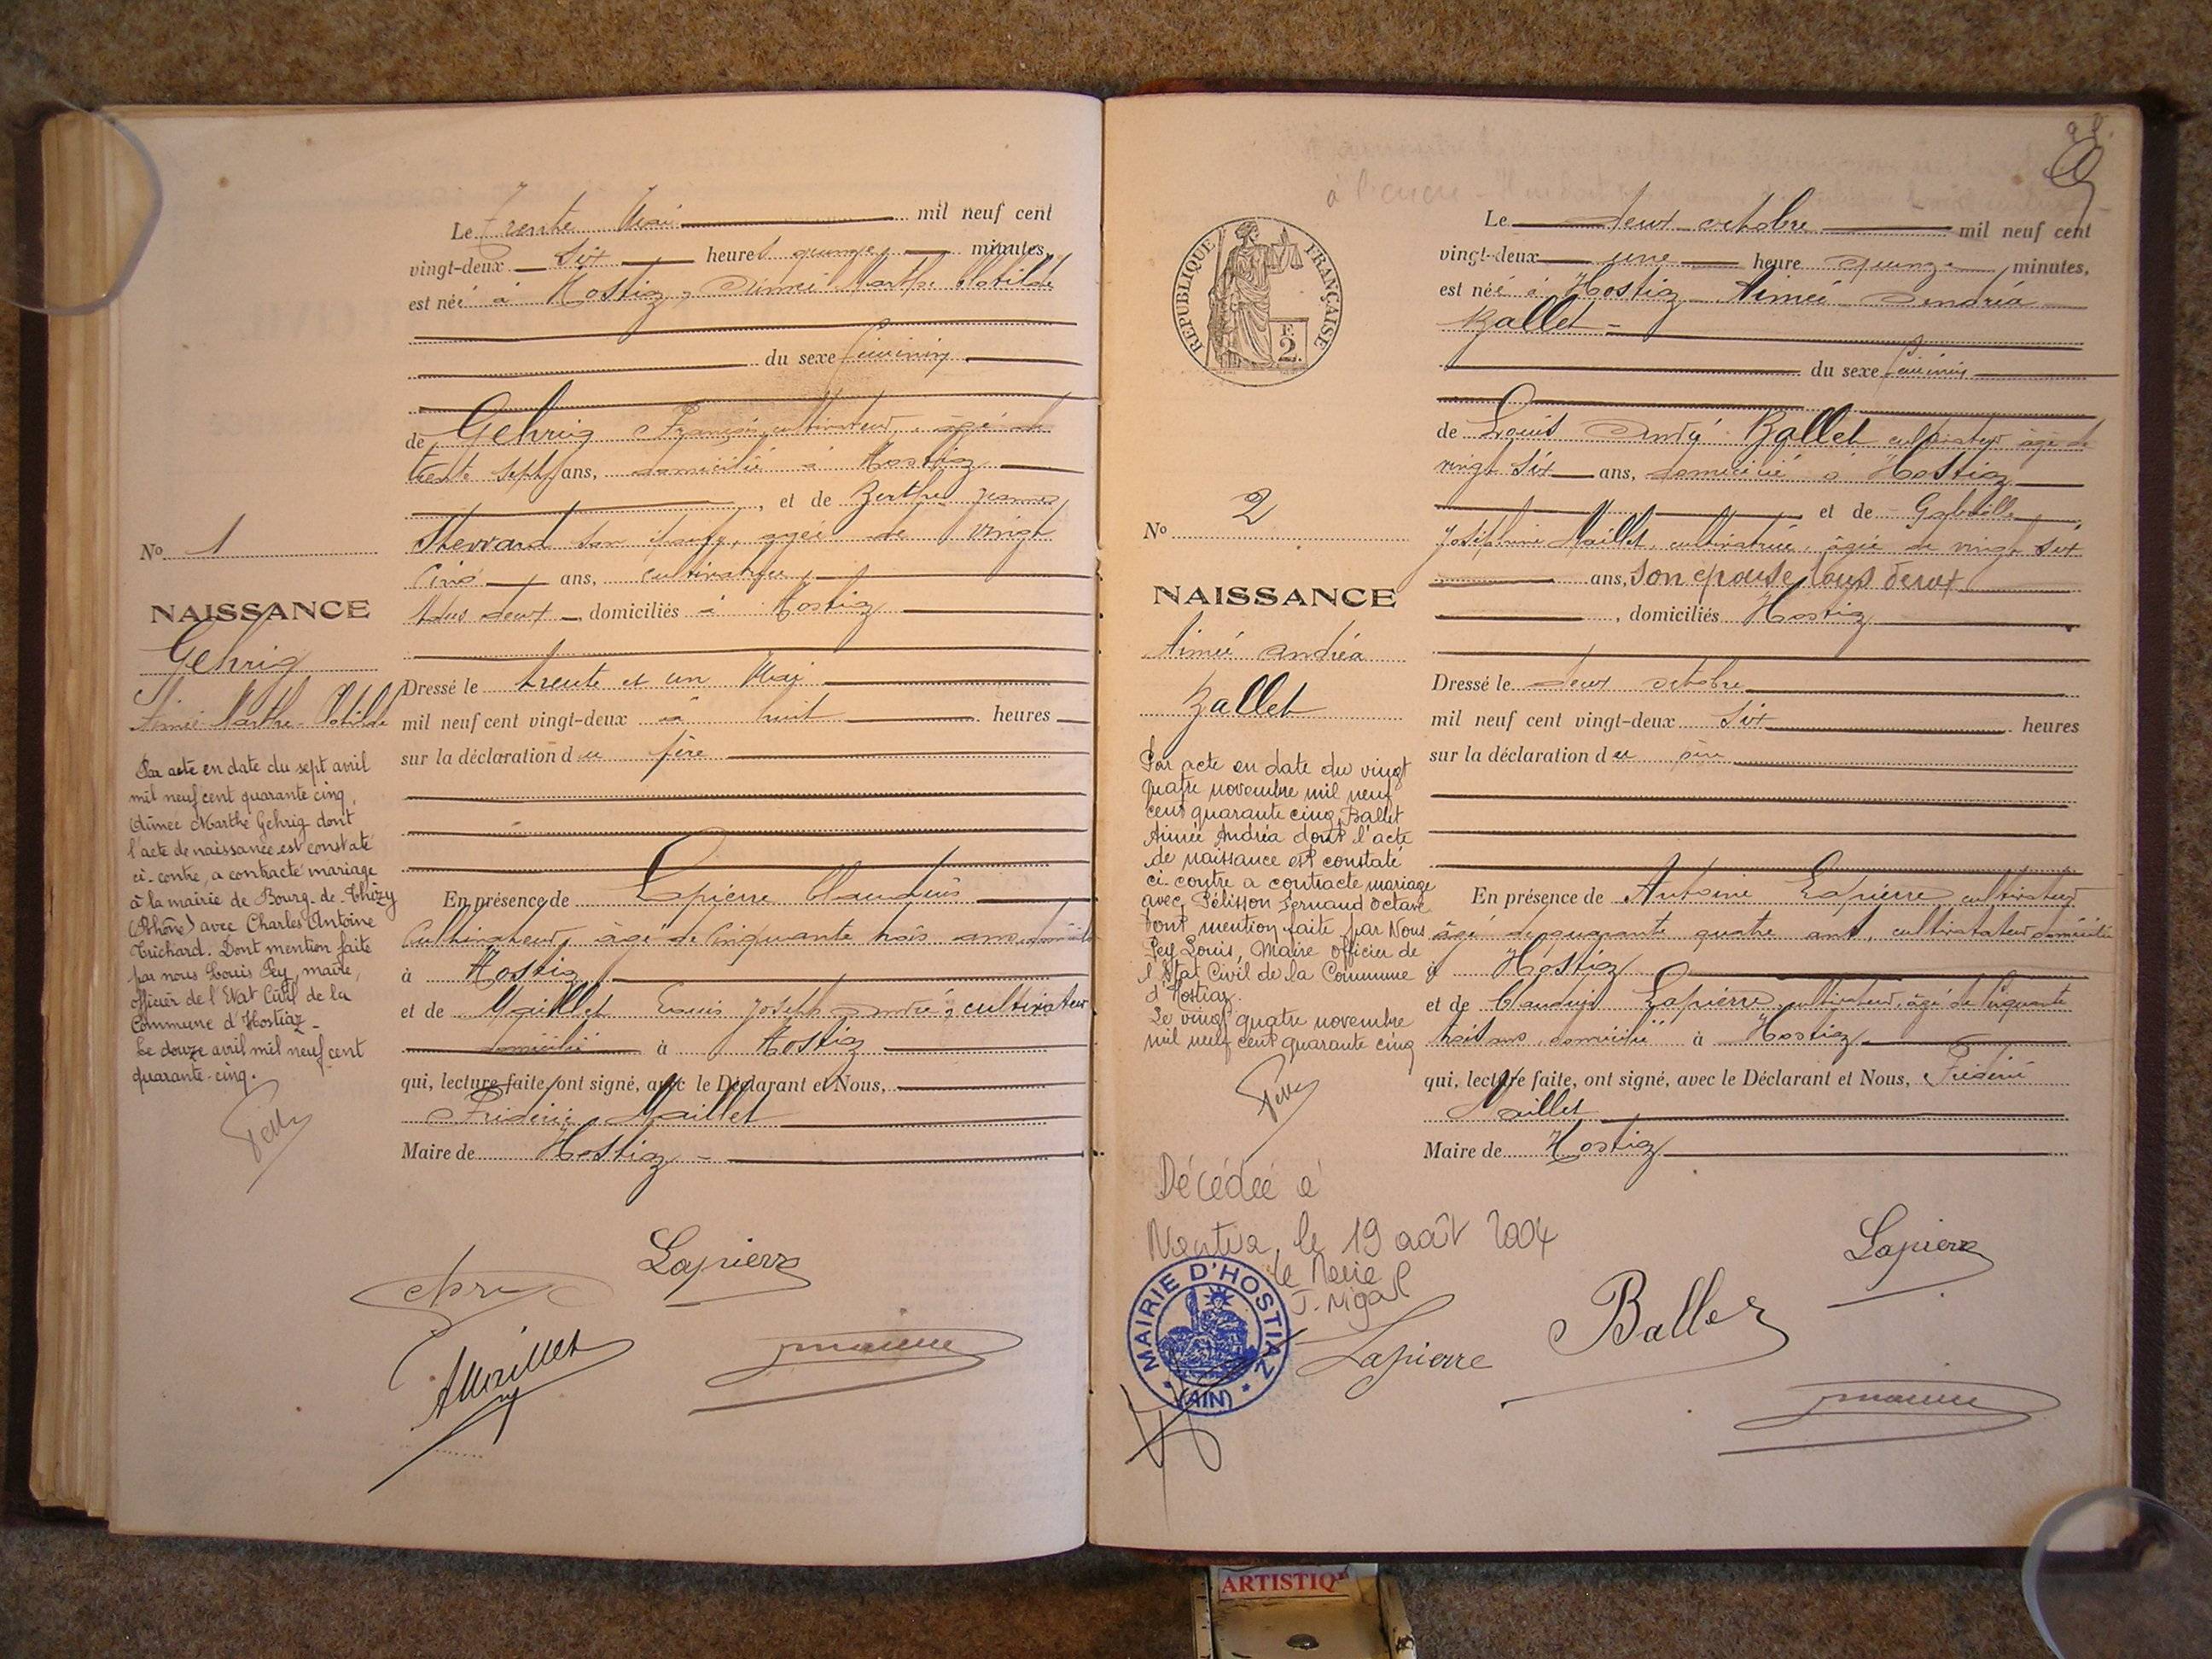 Le Trente Mai mil neuf cent
vingt-deux six heures quinze minutes,
est née à Hostiaz, Aimée Marthe Clotilde
du sexe féminin
de Gehrig François, cultivateur, âgé de
trente sept ans, domicilié à Hostiaz
, et de Berthe Jeanne
son épouse, agée de vingt
cinq ans, cultivatrice,
tous deux, domiciliés à Hostiaz
Dressé le trente et un Mai
mil neuf cent vingt-deux à huit heures
sur la déclaration du père
En présence de Lapierre Claudius
Cultivateur, âgé de Cinquante trois ans, domicilié
à Hostiaz
et de Maillet Louis Joseph André, cultivateur
domicilié à Hostiaz
qui, lecture faite, ont signé, avec le Déclarant et Nous,
Frédéric Maillet
Maire de Hostiaz
No 1
NAISSANCE
Gehrig
Aimée Marthe Clotilde
Par acte en date du sept avril
mil neuf cent quarante cinq,
Aimée Marthe Gehrig dont
l'acte de naissance est constaté
ci-contre, a contracté mariage
à la mairie de Bourg-de-Thizy
(Rhône) avec Charles Antoine
Trichard. Dont mention faite
par nous Louis Pey, maire,
officier de l'Etat Civil de la
Commune d'Hostiaz
Le douze avril mil neuf cent
quarante-cinq.
Lapierre
AMaillet
REPUBLIQUE FRANÇAISE
F.
2
No 2
NAISSANCE
Aimée Andréa
Ballet
Par acte en date du vingt
quatre novembre mil neuf
cent quarante cinq, Ballet
Aimée Andréa dont l'acte
de naissance est constaté
ci-contre a contracté mariage
avec Pélisson Fernand Octave
Dont mention faite par Nous
Pey Louis, Maire officier de
l'Etat Civil de la Commune
d'Hostiaz.
Le vingt quatre novembre
mil neuf cent quarante cinq
Décédée à
Nantua, le 19 août 2004
le Maire
MAIRIE D'HOSTIAZ
(AIN)
Le deux octobre mil neuf cent
vingt-deux une heure quinze minutes,
est née à Hostiaz Aimée Andréa
Ballet
du sexe féminin
de Louis André Ballet cultivateur âgé de
vingt six ans, domicilié à Hostiaz
et de Gabrielle
Joséphine Maillet, cultivatrice, âgée de vingt six
ans, son épouse, tous deux
, domiciliés Hostiaz
Dressé le deux octobre
mil neuf cent vingt-deux six heures
sur la déclaration du père
En présence de Antoine Lapierre, cultivateur
âgé de quarante quatre ans, cultivatateur domicilié
à Hostiaz
et de Claudius Lapierre, cultivateur, âgé de Cinquante
trois ans, domicilié à Hostiaz
qui, lecture faite, ont signé, avec le Déclarant et Nous, Frédéric
Maillet
Maire de Hostiaz
Lapierre
Ballet
Lapierre
ARTISTIQ